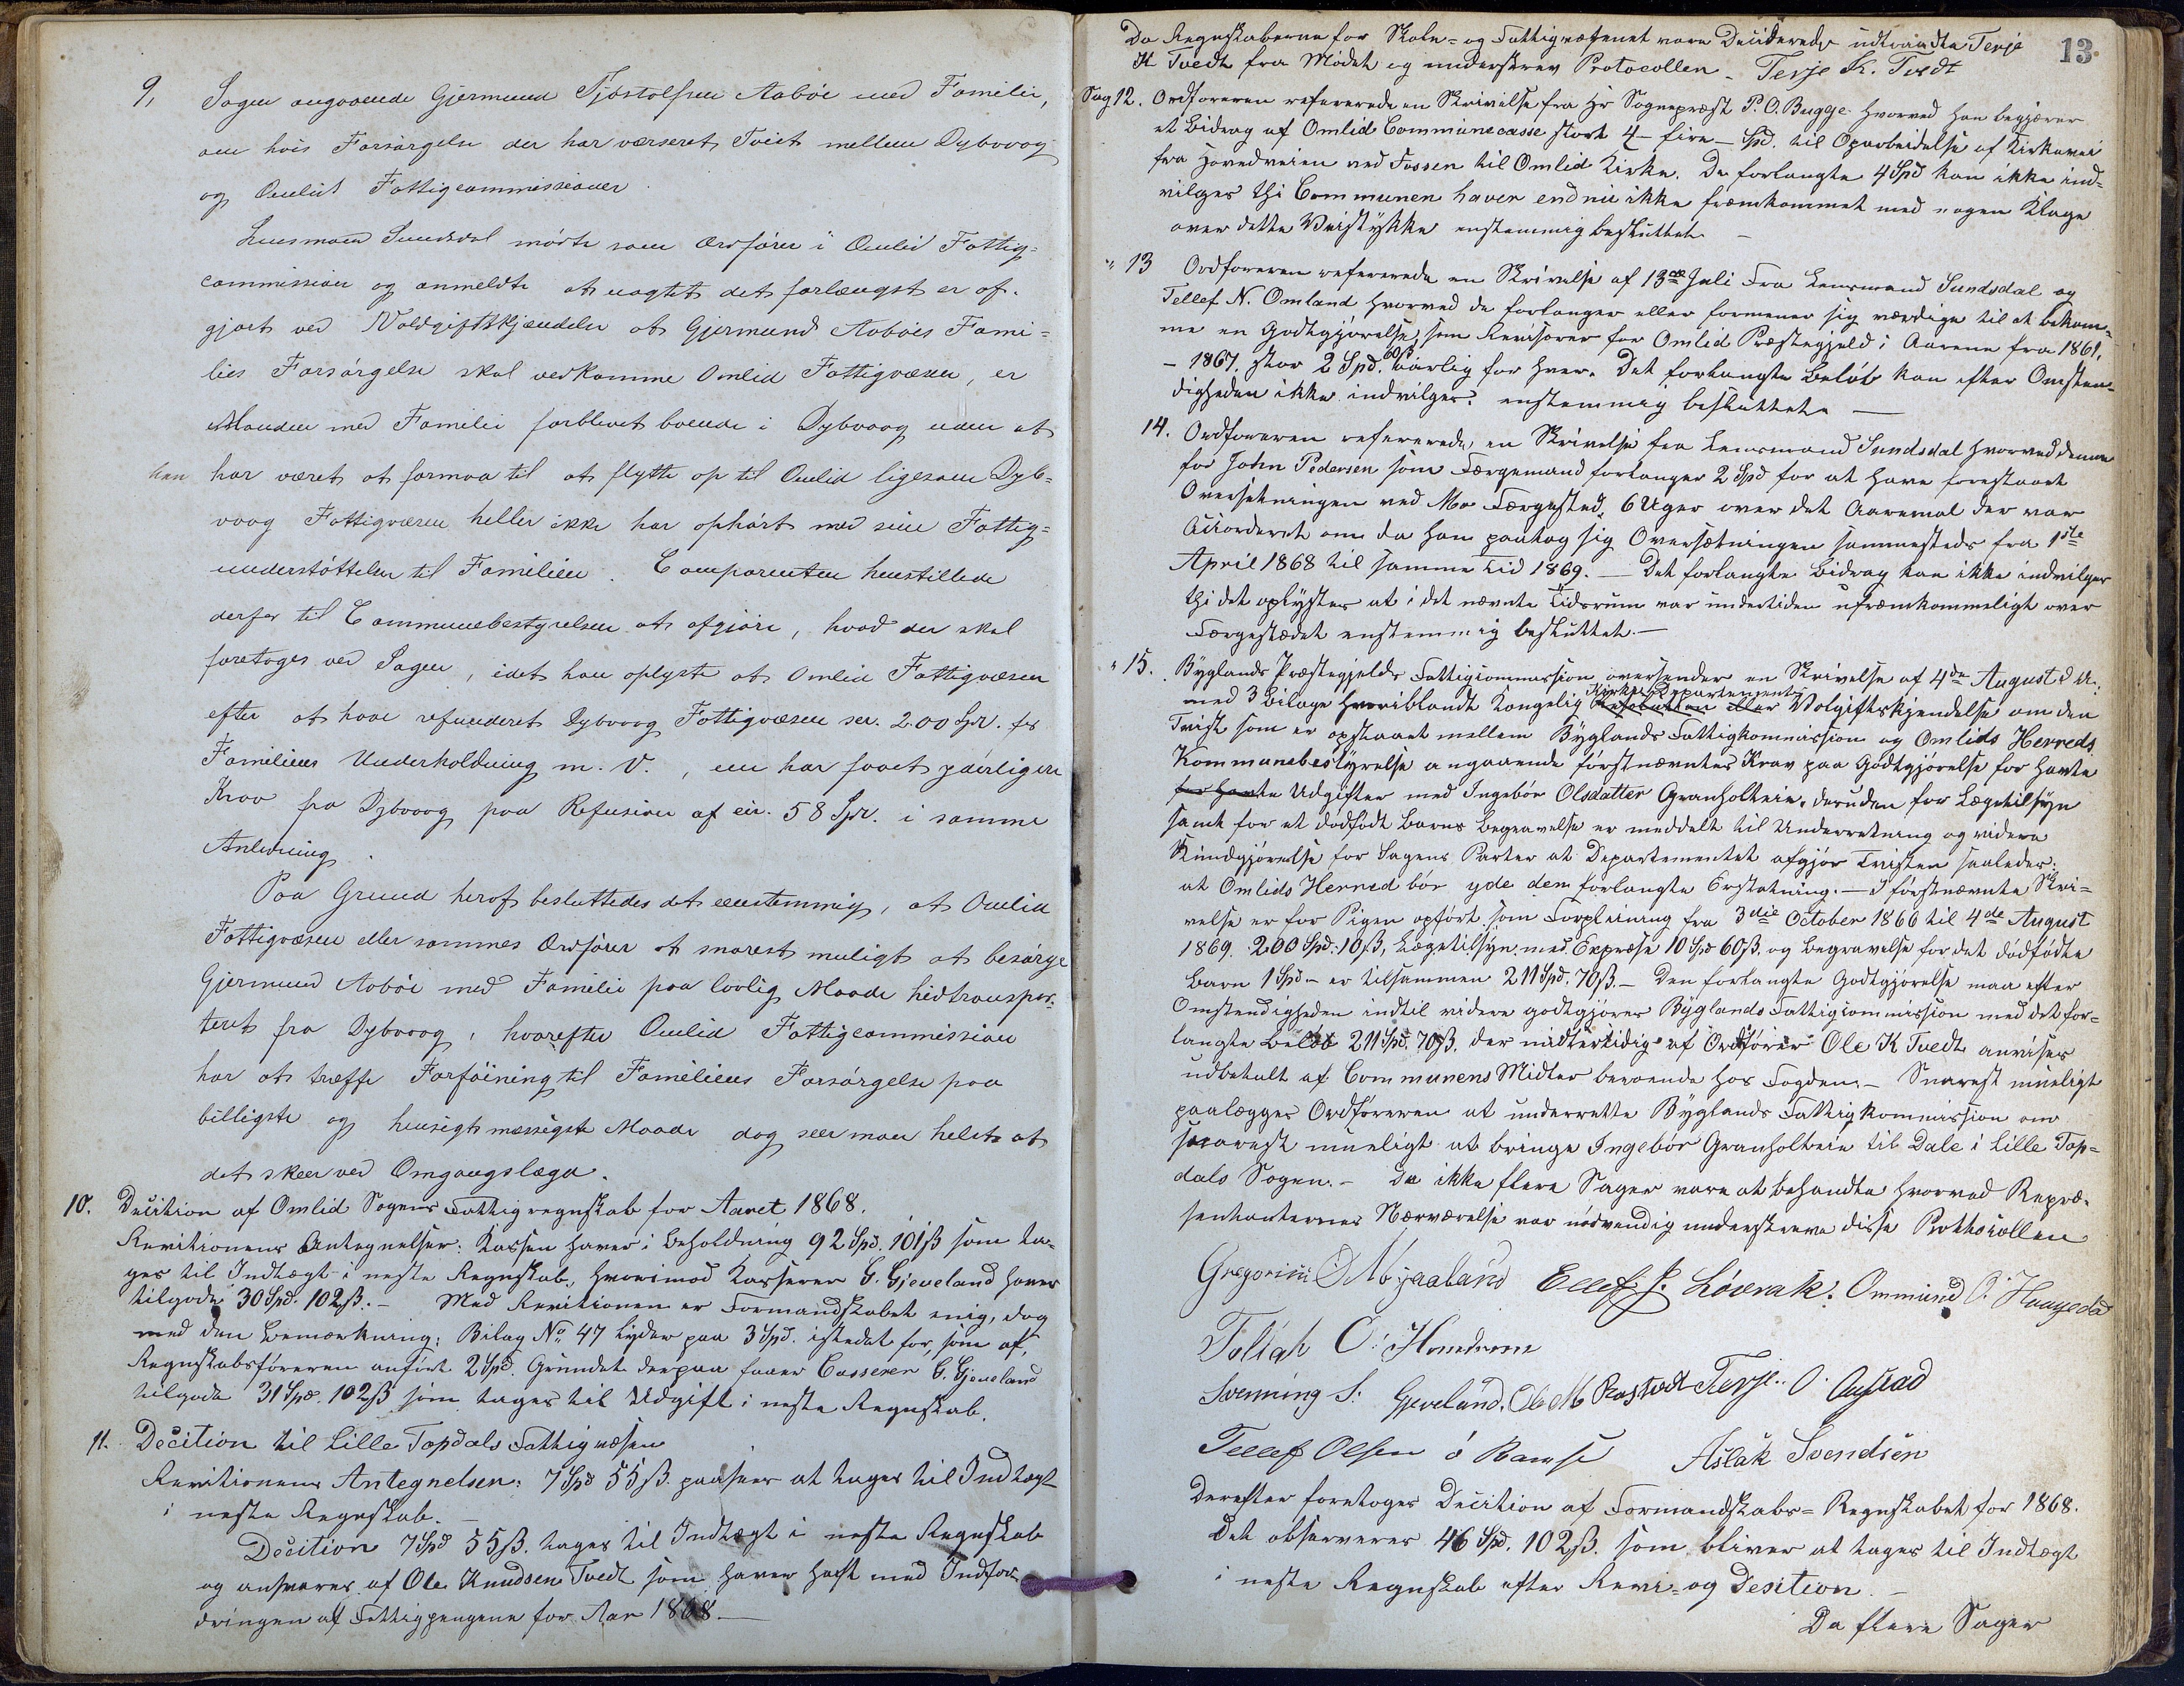 9, Sagen angaaende Gjermund Tjøstolfsen Aabøe med Familie,
om hvis Forsørgelse der har værseret Tvist mellem Dybvaag
og Omlid Fattigcommissioner.
Lensmand Sundsdal mødte som Ordfører i Omlid Fattig=
commission og anmeldte at uagtet det forlængst er af-
gjort ved Voldgiftskjendelse at Gjermund Aabøes Fami=
lies Forsørgelse skal vedkomme Omlid Fattigvæsen, er
Manden med Familie forblevet boende i Dybvaag uden at
han har været at formaa til at flytte op til Omlid ligesom Dyb=
vaag Fattigvæsen heller ikke har ophørt med sine Fattig=
understøttelser til Familien. Comparenten henstillede
derfor til Communebestyrelsen at afgjøre, hvad der skal
foretages ved Sagen, idet han oplyste at Omlid Fattigvæsen
efter at have refunderet Dybvaag Fattigvæsen ser. 200 Spd. for
Familiens Underholdning m. V., nu har faaet yderligere
Krav fra Dybvaag paa Refusion af cir. 58 Spd. i samme
Anledning.
Paa Grund heraf besluttedes det eenstemmig, at Omlid
Fattigvæsen eller sammes Ordfører at snarest muligt at besørge
Gjermund Aabøe med Familie paa lovlig Maade hidtranspor-
teret fra Dybvaag, hvorefter Omlid Fattigcommission
har at træffe Forføining til Familiens Forsørgelse paa
billigste og hensigtsmæssigste Maade dog seer man helst at
det skeer ved Omgangslægd.
10. Decition af Omlid Sogens Fattigregnskab for Aaret 1868.
Revitionens Antegnelser: Kassen haver i Beholdning 92 Spd. 101 ß som ta-
ges til Indtægt i neste Regnskab, hvorimod Kasserer G. Gjeveland haver
tilgode 30 Spd. 102 ß. - Med Revitionen er Formandskabet enig, dog
med den Bemærkning: Bilag No 47 lyder paa 3 Spd. istedet for, som af
Regnskabsføreren anført 2 Spd. Grundet derpaa faaer Casserer G. Gjeveland
tilgode 31 Spd. 102 ß som tages til Udgift i neste Regnskab.
11. Decition til Lille Topdals Fattigvæsen
Revitionens Antegnelsen: 7 Spd 55 ß. paasees at tages til Indtægt
i neste Regnskab. -
Decition 7 Spd 55 ß. tages til Indtægt i neste Regnskab
og ansvares af Ole Knudsen Tvedt som haver haft med Indfor-
dringen af Fattigpengene for Aar 1868. -
13.
Da Regnskaberne for Skole= og Fattigvæsenet vare Deciderede udtraadte Terje
K Tvedt fra Mødet og underskrev Protocollen - Terje K. Tvedt
Sag 12. Ordføreren refererede en Skrivelse fra Hr Sognepræst P. O. Bugge hvorved han begjærer
et Bidrag af Omlid Communecasse stort 4 - fire - Spd. til Oparbeidelse af Kirkevei
fra Hovedveien ved Fossen til Omlid Kirke. De forlangte 4 Spd kan ikke ind=
vilges thi Communen haver endnu ikke fræmkommet med nogen Klage
over dette Veistykke enstemmig besluttet. -
" 13 Ordføreren refererede en Skrivelse af 13de Juli fra Lensmand Sundsdal og
Tellef N. Omland hvorved de forlanger eller formener sig værdige til at bekom=
me en Godtgjørelse, som Revisorer for Omlid Præstegjeld i Aarene fra 1861,
- 1867. stor 2 Spd. 60 ß aarlig for hver. Det forlangte Beløb kan efter Omsten=
digheden ikke indvilges. enstemmig besluttet. -
14. Ordføreren refererede, en Skrivelse fra Lensmand Sundsdal hvorved denne
for John Pedersen som Færgemand forlanger 2 Spd for at have forestaaet
Oversetningen ved Mo Færgested, 6 Uger over det Aaremal der var
Accorderet om da han paatog sig Oversætningen sammesteds fra 1ste
April 1868 til samme Tid 1869. - Det forlangte Bidrag kan ikke indvilges
thi det oplystes at i det nævnte Tidsrum var undertiden ufræmkommeligt over
Færgestædet enstemmig besluttet. -
" 15. Byglands Præstegjelds Fattigcommission oversender en Skrivelse af 4de August d A:
med 3 Bilage hvoriblandt Kongelig Kirke Departements Resolution eller Volgiftskjendelse om den
Tvist som er opstaaet mellem Byglands Fattigkommission og Omlids Herreds
Kommunebestyrelse angaaende førstnævntes Krav paa Godtgjørelse for havte
for havte Udgifter med Ingebør Olsdatter Granholtein, desuden for Lægetilsyn
samt for et dødfødt Barns Begravelse er meddelt til Underretning og videre
Kundgjørelse for Sagens Parter at Departementet afgjør Tvisten saaledes:
at Omlids Herred bør yde den forlangte Erstatning. - I førstnævnte Skri=
velse er for Pigen opført som Forpleining fra 3die October 1866 til 4de August
1869. 200 Spd. 10 ß, Lægetilsyn med Exprese 10 Spd 60 ß. og Begravelse for det dødfødte
Barn 1 Spd - er tilsammen 211 Spd. 70 ß. - Den forlangte Godtgjørelse maa efter
Omstendigheden indtil videre godtgjøres Byglands Fattigcommission med det for=
langte Beløb 211 Spd. 70 ß. der midlertidig af Ordfører Ole K Tvedt anvises
udbetalt af Communens Midler beroende hos Fogden. - Snarest mueligt
paalægges Ordføreren at underrette Byglands Fattigkommission om
snarest mueligt at bringe Ingebør Granholtein til Dale i Lille Top=
dals Sogen. - Da ikke flere Sager vare at behandle hvorved Repræ-
sentanternes Nærværelse var nødvendig underskreve disse Prothocollen
Gregorius O Mjaaland Ellef J. Løvrak: Ommund O: Haugedal
Tollak O: Homdrom
Svenning S: Gjeveland. Ole M Rostvedt Terje O. Augstad
Tellef Olsen ó Ramse Aslak Svendsen
Derefter foretoges Decition af Formandskabs= Regnskabet for 1868.
Det observeres 46 Spd. 102 ß. som bliver at tages til Indtægt
i neste Regnskab efter Revi= og Desition. -
Da flere Sager